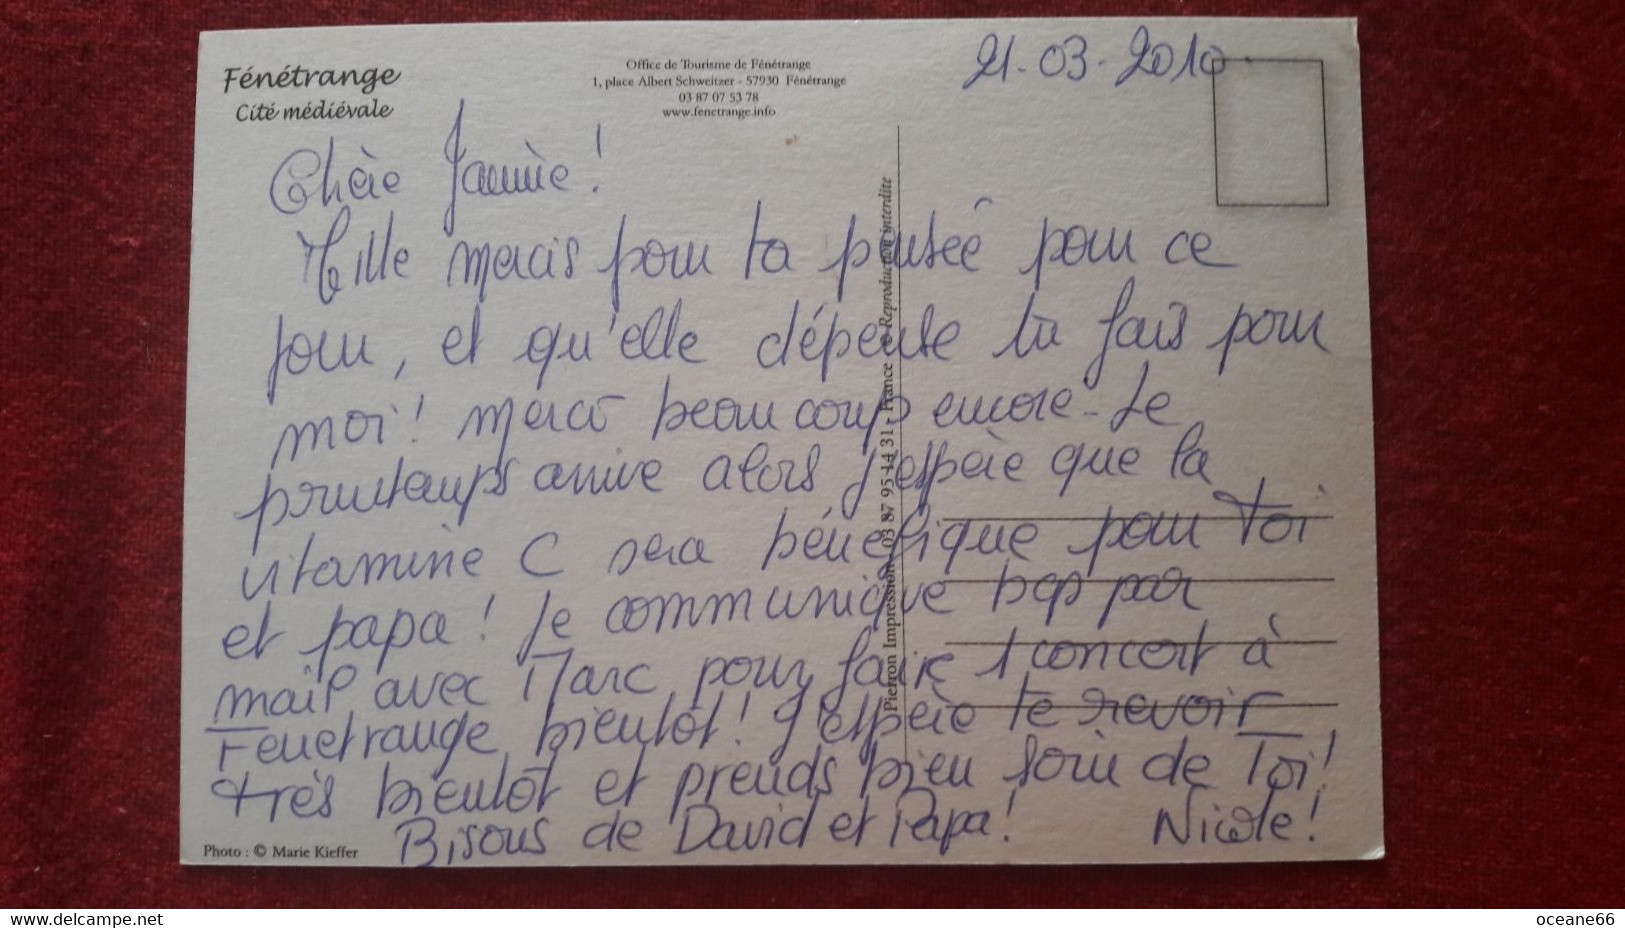 Fénétrange
Cité médiévale
Office de Tourisme de Fénétrange
1, place Albert Schweitzer - 57930 Fénétrange
03 87 07 53 78
www.fenetrange.info
21-03-2010
Chère !
Mille mercis pour ta pensée pour ce
jour, et qu'elle dépense tu fais pour
moi! merci beaucoup encore - Le
printemps arrive alors j'espère que la
vitamine C sera bénéfique pour Toi
et papa! Je communique bcp par
mail avec Marc pour faire 1 concert à
Fenetrange bientôt! J'espère te revoir
très bientôt et prends bien soin de Toi!
Bisous de David et Papa! Nicole!
Pierron Impression - 03 87 95 14 31 - France - Reproduction interdite
Photo : © Marie Kieffer
www.delcampe.net
oceane66